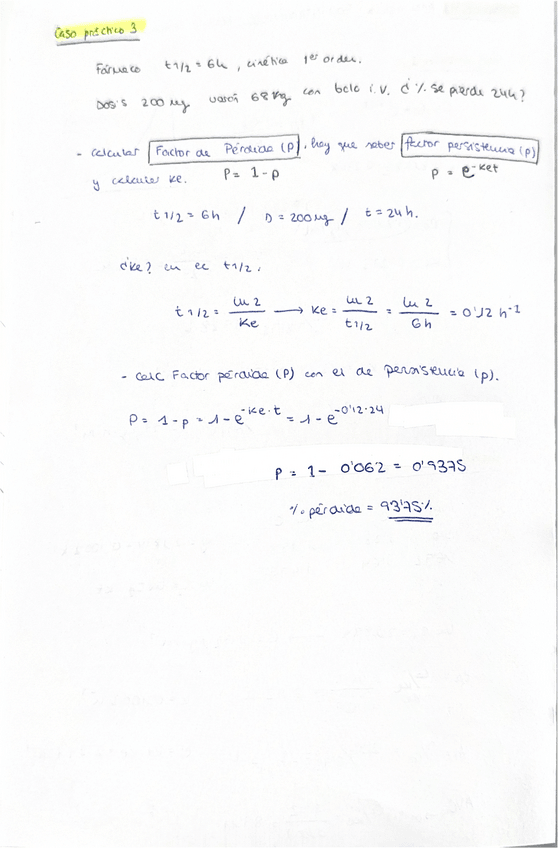 Caso práctico 3
Fármaco t 1/2 = 6h, cinética 1er orden.
Dosis 200 mg varón 68 kg con bolo i.v. ¿% se pierde 24h?
- calcular Factor de Pérdida (P). hay que saber factor persistencia (p)
y calcular ke. P = 1 - p p = e^-ket
t 1/2 = 6h / D = 200 mg / t = 24h.
¿ke? en el t 1/2.
t 1/2 = ln 2 / Ke → Ke = ln 2 / t 1/2 = ln 2 / 6h = 0'12 h^-1
- calc Factor pérdida (P) con el de persistencia (p).
P = 1 - p = 1 - e^-Ke·t = 1 - e^-0'12·24
P = 1 - 0'062 = 0'9375
% pérdida = 93'75%